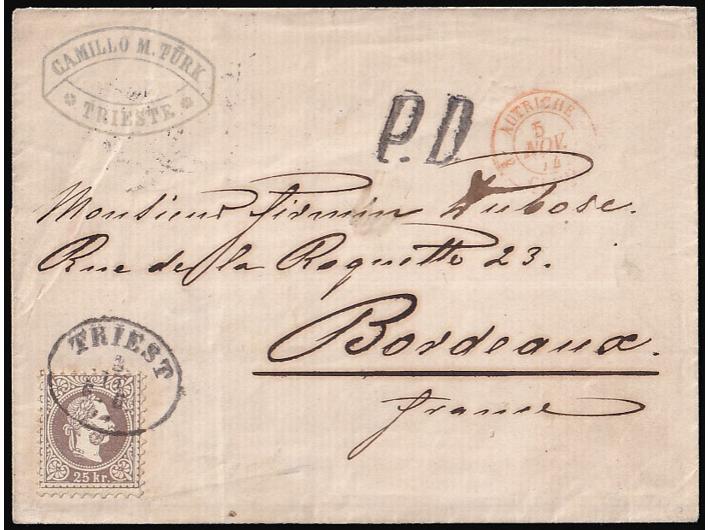 CAMILLO M. TÜRK
TRIESTE
P.D.
AUTRICHE
5
NOV.
74
Monsieur Firmin Dubosc.
Rue de la Roquette 23.
Bordeaux.
France
TRIEST
25 kr.